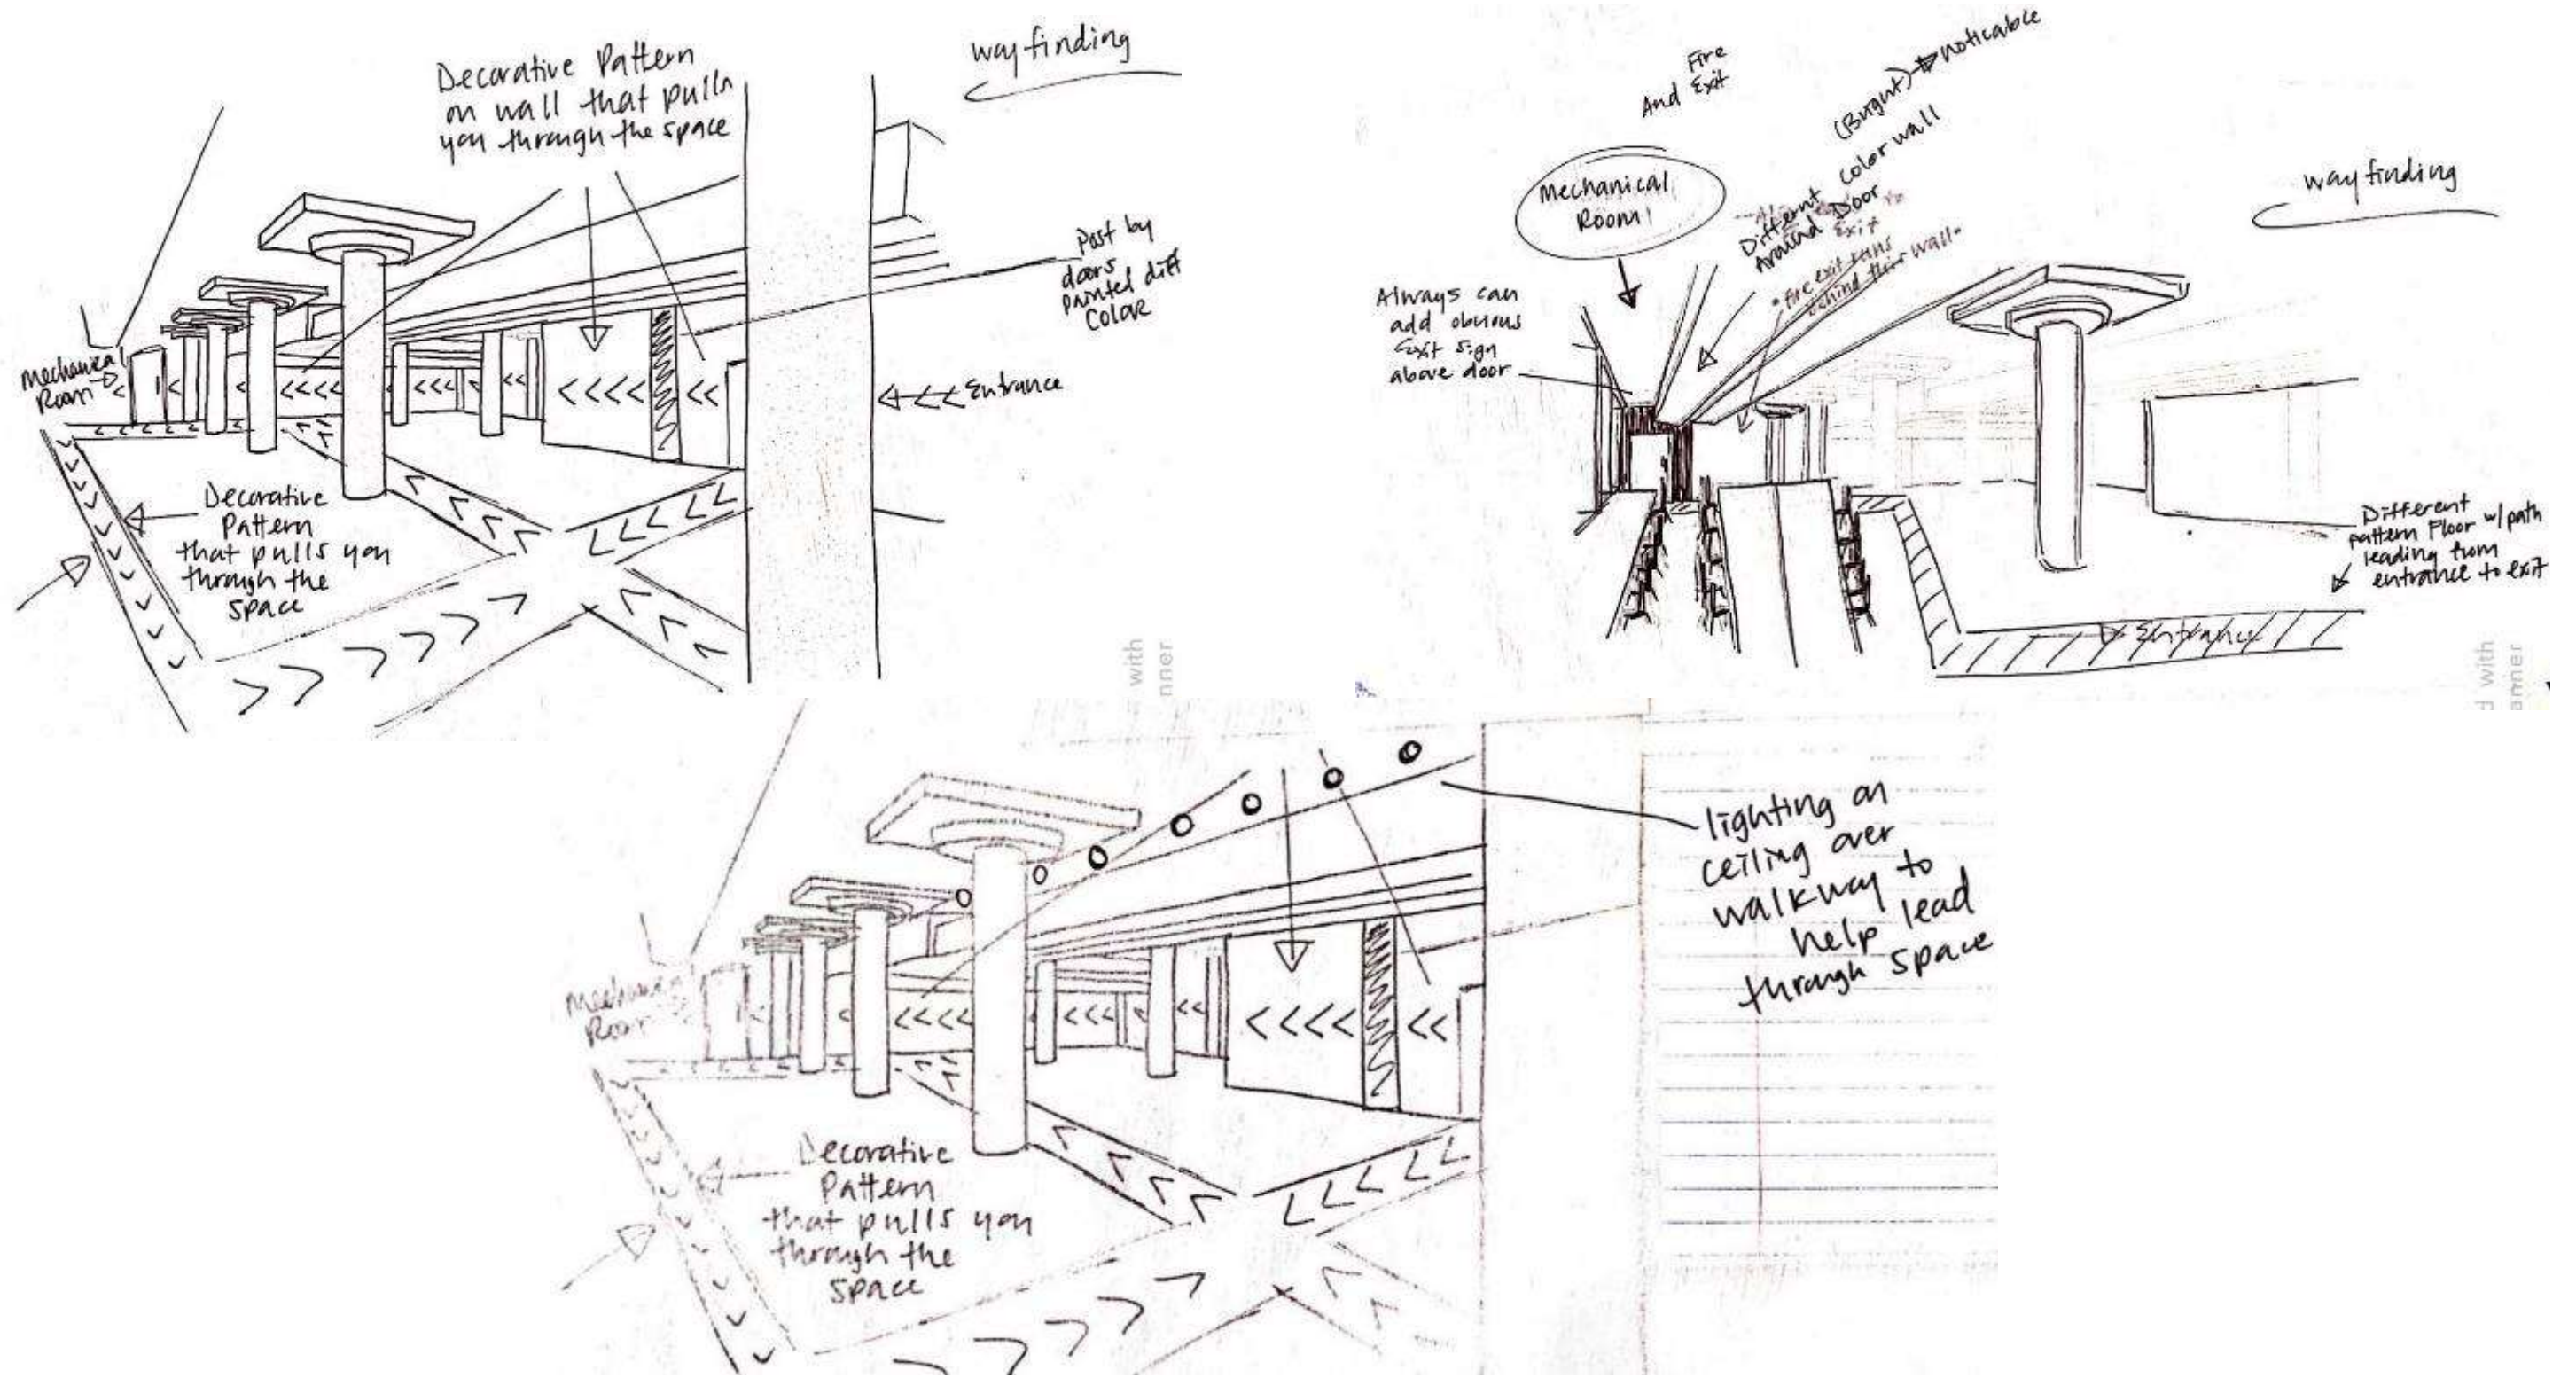 way finding
Decorative Pattern
on wall that pulls
you through the space
Post by
doors
painted diff
Color
Mechanical
Room
Entrance
Decorative
Pattern
that pulls you
through the
space
with
nner
And Fire
Exit
(Bright) noticable
Mechanical
Room
Different color wall
Around Door
Exit
fire exit runs
behind this wall
way finding
Always can
add obvious
Exit sign
above door
Different
pattern Floor w/path
leading from
entrance to exit
Entrance
d with
anner
lighting on
ceiling over
walkway to
help lead
through space
Mechanical
Room
Decorative
Pattern
that pulls you
through the
space